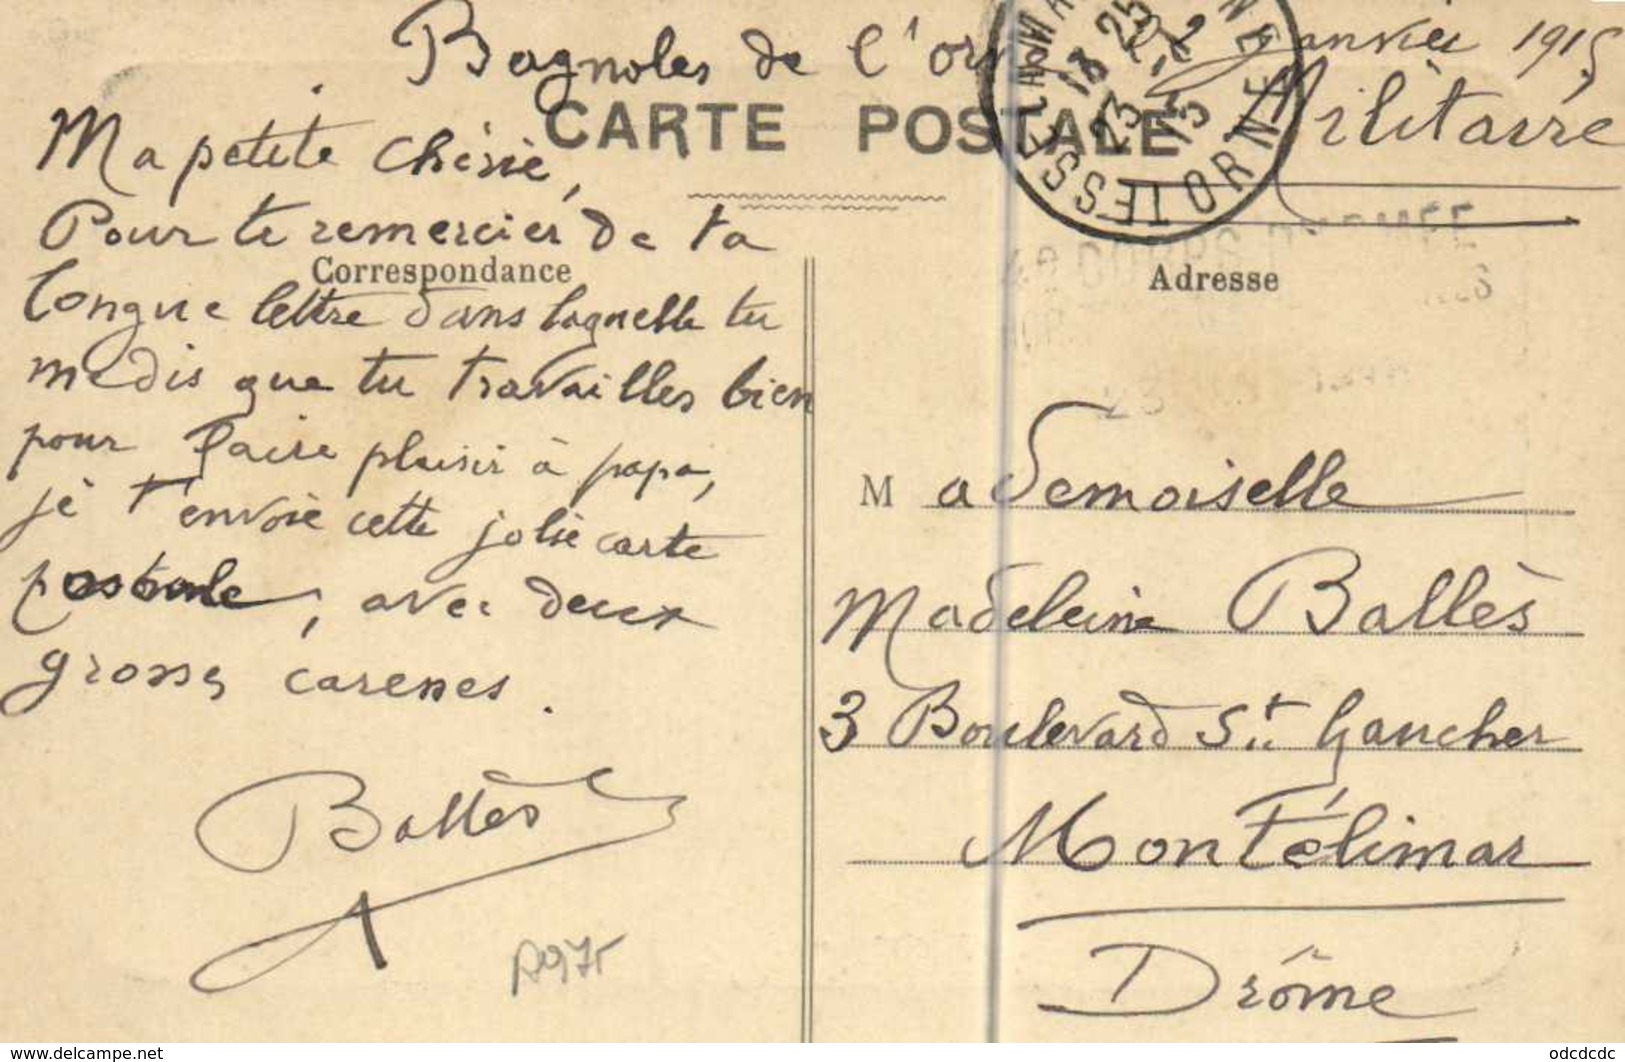 Bagnoles de l'orne 22 Janvier 1915
CARTE POSTALE
Militaire
TESSE LA MA
18 25
23 -1
15
ORNE
Ma petite chérie,
Pour te remercier de ta
Correspondance
longue lettre dans laquelle tu
me dis que tu travailles bien
pour faire plaisir à papa,
je t'envoie cette jolie carte
postale, avec deux
grosses caresses.
Ballès
A975
Adresse
Mademoiselle
Madeleine Ballès
3 Boulevard St Gaucher
Montélimar
Drôme
www.delcampe.net
odcdcdc